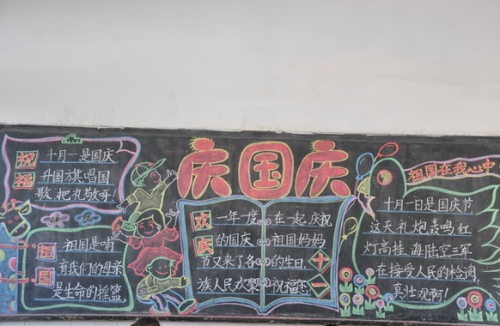 庆国庆
祝福
十月一是国庆
升国旗唱国
歌,把礼敬哥
祖国
祖国是哺
育我们的母亲
是生命的摇篮
欢庆
一年一度
的国庆
节又来了各
族人民欢聚
在一起,庆祝
祖国妈妈
的生日,
祝福您
十一
祖国在我心中
十月一日是国庆节
这天礼炮轰鸣红
灯高挂,海陆空三军
在接受人民的检阅
真壮观啊!